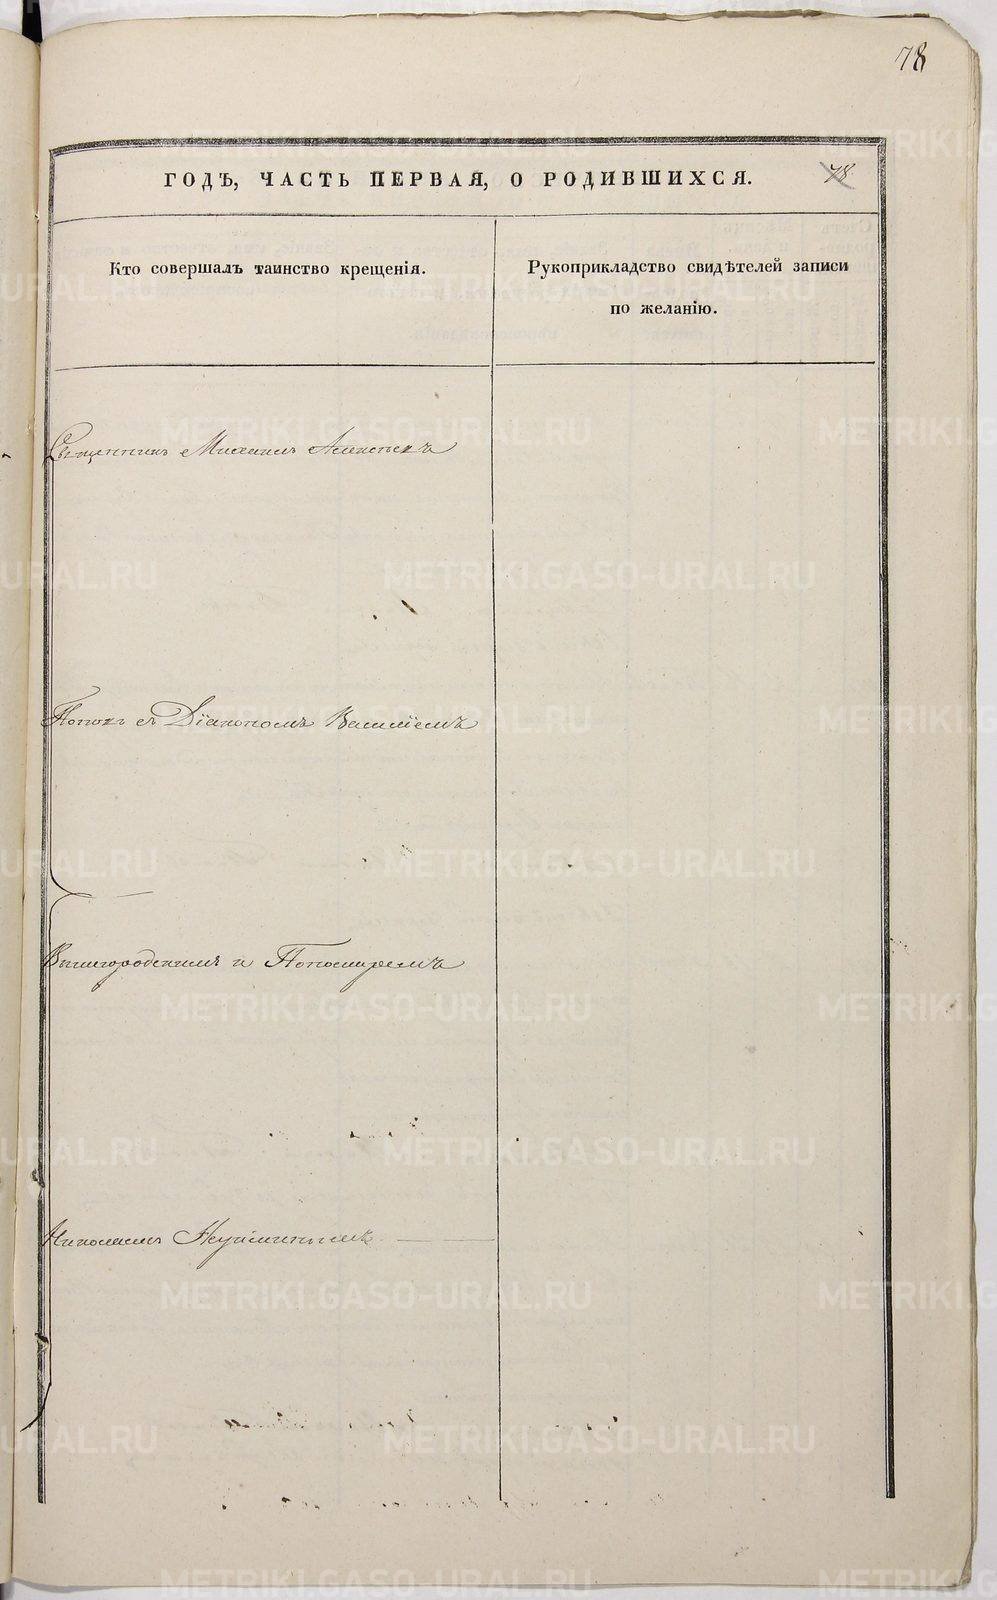 78
ГОДЪ, ЧАСТЬ ПЕРВАЯ, О РОДИВШИХСЯ.
78
Кто совершалъ таинство крещенія.
Рукоприкладство свидѣтелей записи
по желанію.
Священникъ Михаилъ
Поповъ съ Діакономъ Василіемъ
Вышегородскимъ и Пономаремъ
Николаемъ
METRIKI.GASO-URAL.RU